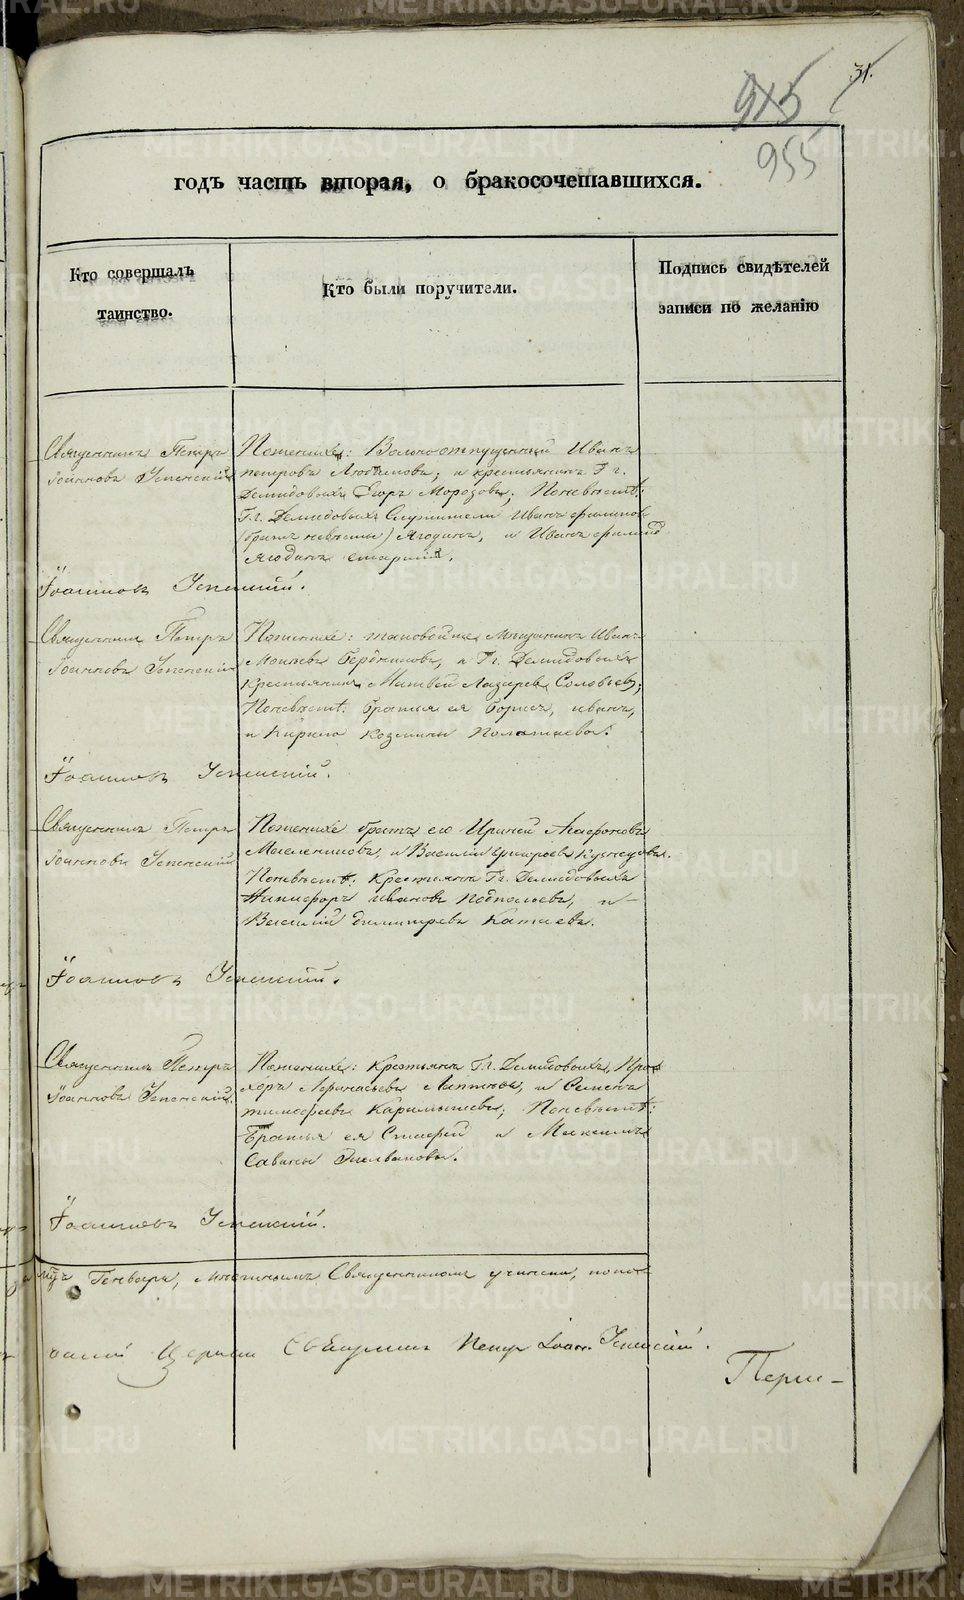 31.
915
955
годъ часть вторая, о бракосочетавшихся.
Кто совершалъ
таинство.
Кто были поручители.
Подпись свидѣтелей
записи по желанію
Священникъ Петръ
Іоанновъ Успенскій
Поженихѣ: Вольноотпущенный Иванъ
петровъ Любимовъ; и крестьянинъ Г.г.
Демидовыхъ Егоръ Морозовъ; Поневѣстѣ:
Г.г. Демидовыхъ Служители Иванъ филипов
(братъ невѣсты) Ягодинъ, и Иванъ филипов
Ягодинъ старшій.
Іоанновъ Успенскій.
Священникъ Петръ
Іоанновъ Успенскій
Поженихѣ: таковой же Мѣщанинъ Иванъ
Моисѣевъ Бердниковъ, и Г.г. Демидовыхъ
Крестьянинъ Матвей Лазаревъ Соловьевъ;
Поневѣстѣ: братья ея Борисъ, иванъ,
и Кирило козмины
Іоанновъ Успенскій.
Священникъ Петръ
Іоанновъ Успенскій
Поженихѣ братъ его Ириней Агафоновъ
Масленниковъ, и Василій григорьевъ Кузнецовъ.
Поневѣстѣ: Крестьяна Г.г. Демидовыхъ
Никифоръ ивановъ и
Василій димитревъ Катаевъ.
Іоанновъ Успенскій.
Священникъ Петръ
Іоанновъ Успенскій.
Поженихѣ: Крестьяна Г.г. Демидовыхъ, Про
хоръ Афанасьевъ Лаптевъ, и Семенъ
тимофеевъ Карамышевъ; Поневѣстѣ:
Братья ея Стафей и Максимъ
Савины
Іоанновъ Успенскій.
мцъ Генварь, Священникомъ учинена, пока
Церкви Священникъ Петръ Іоан. Успенскій.
Перм-
METRIKI.GASO-URAL.RU